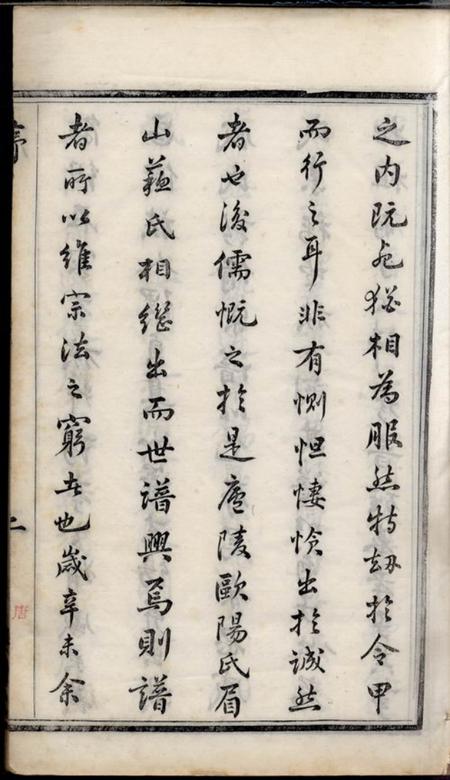 之内既免猶相為服然特劫於令甲
而行之耳非有惻怛悽惔出於誠然
者也後儒慨之於是廬陵歐陽氏眉
山蘇氏相繼出而世譜興焉則譜
者所以維宗法之窮者也歲辛未余
序
二